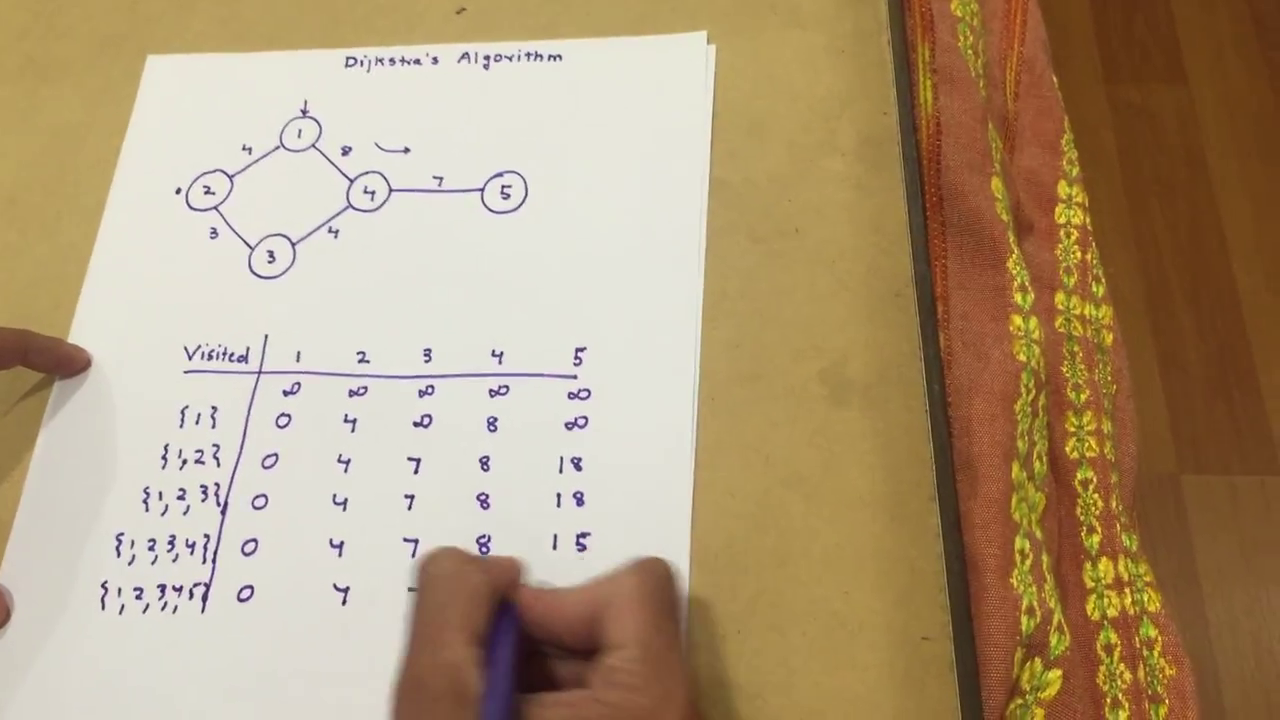 Dijkstra's Algorithm
1
4 8
2 4 7 5
3 4
3
Visited 1 2 3 4 5
∞ ∞ ∞ ∞ ∞
{1} 0 4 ∞ 8 ∞
{1,2} 0 4 7 8 18
{1,2,3} 0 4 7 8 18
{1,2,3,4} 0 4 7 8 15
{1,2,3,4,5} 0 4